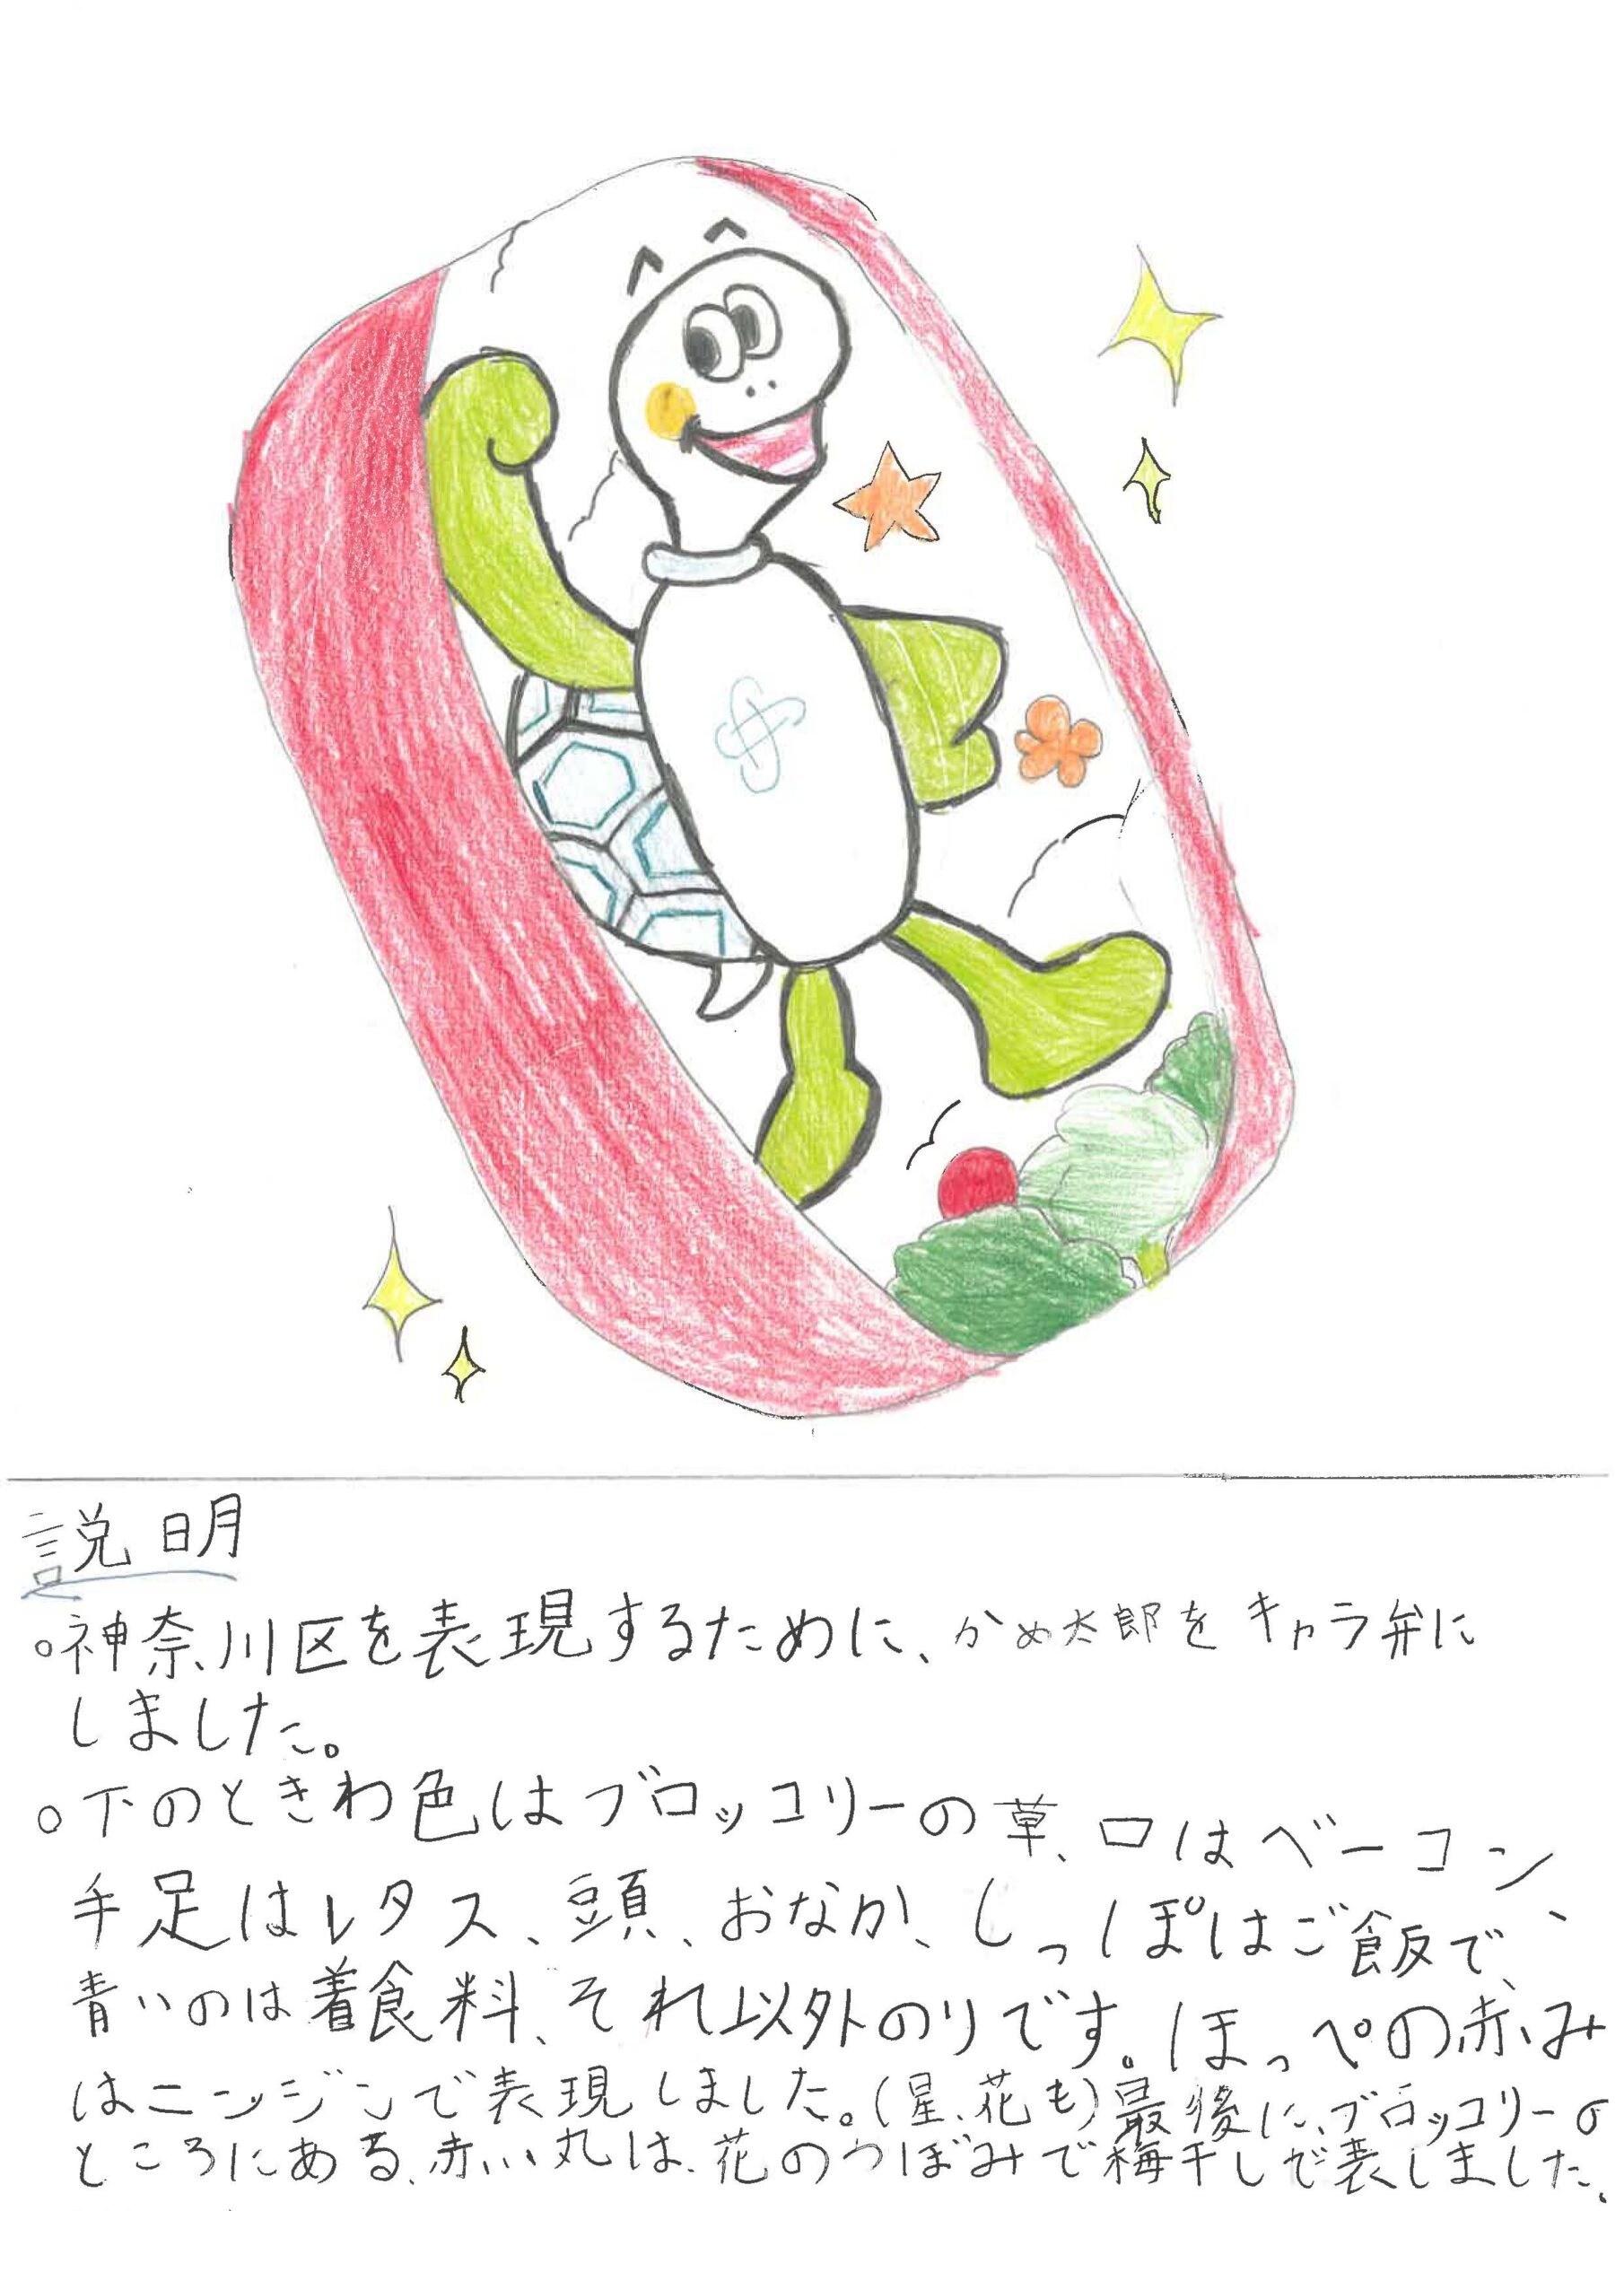 説明
○神奈川区を表現するために、かめ太郎をキャラ弁に
しました。
○下のときわ色はブロッコリーの草、口はベーコン、
手足はレタス、頭、おなか、しっぽはご飯で、
青いのは着食料、それ以外のりです。ほっぺの赤み
はニンジンで表現しました。(星、花も)最後に、ブロッコリーの
ところにある、赤い丸は、花のつぼみで梅干しで表しました。